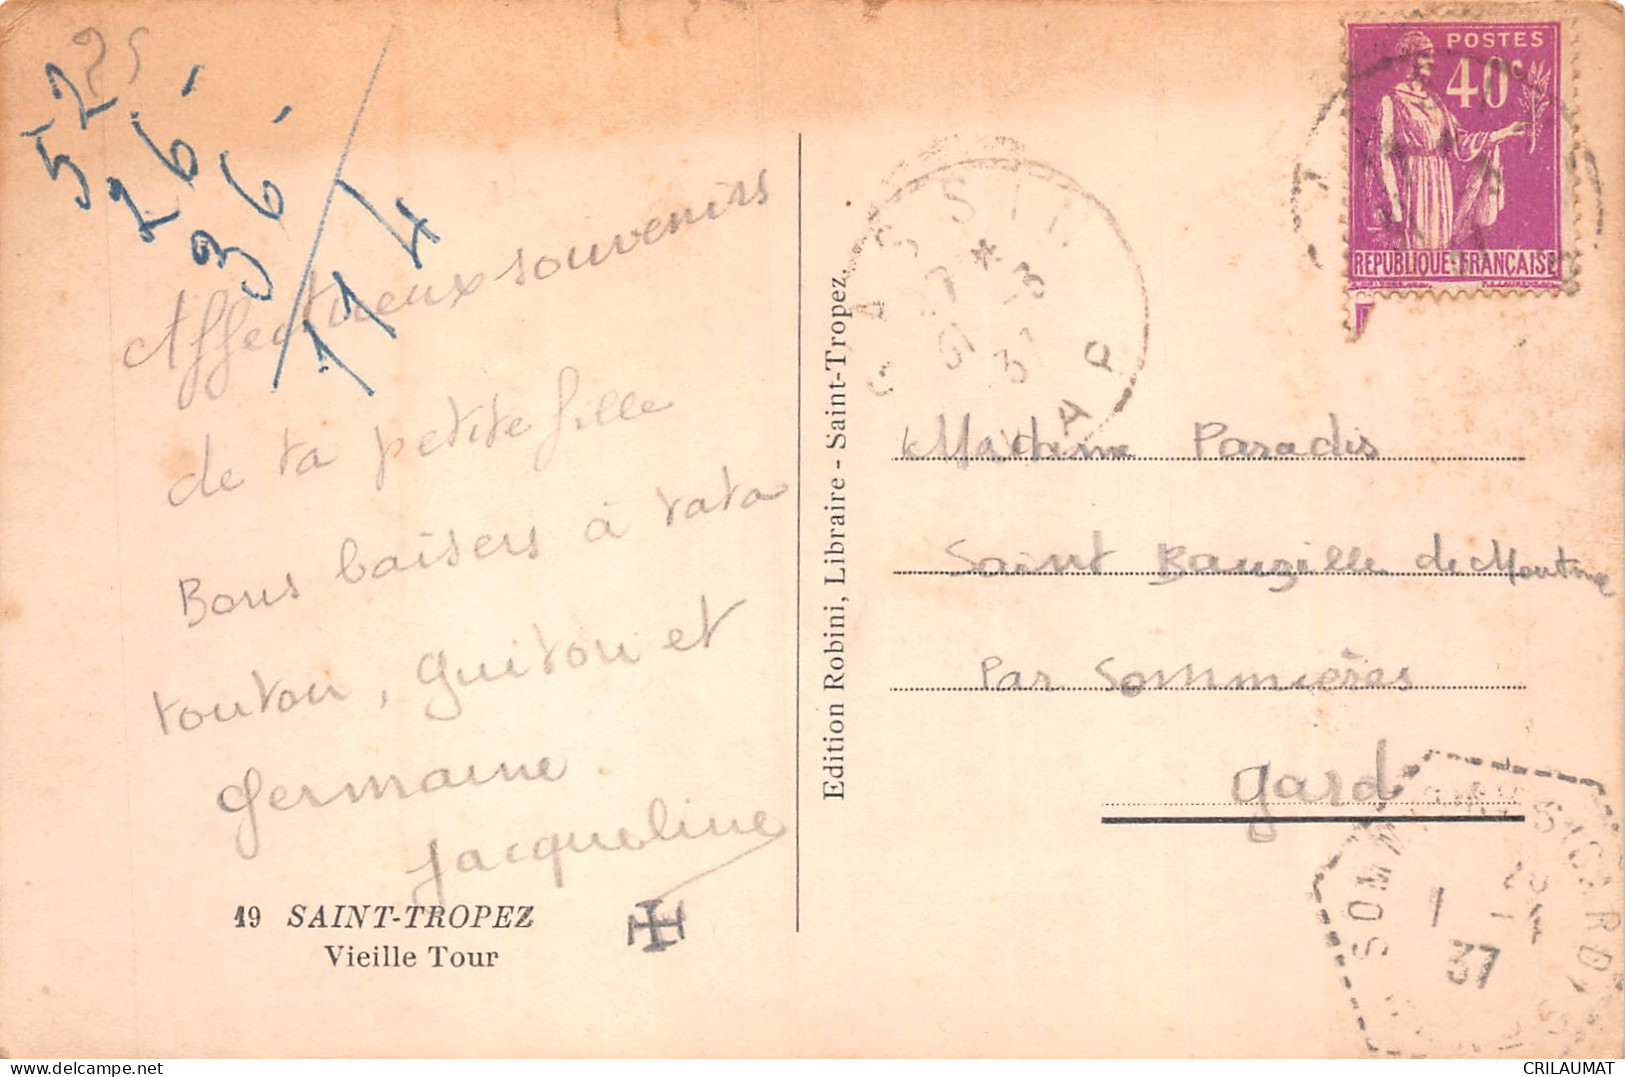 25
52
26
36
114
Affectueux souvenirs
de ta petite fille
Bons baisers à tata
touton, guitou et
Germaine.
Jacqueline
19 SAINT-TROPEZ
Vieille Tour
Edition Robini, Libraire - Saint-Tropez
GASSIN
VAR
37
POSTES
40c
REPUBLIQUE FRANÇAISE
Madame Paradis
Saint Bauzille de Montme
Par Sommières
Gard
SOMM
GARD
1
37
CRILAUMAT